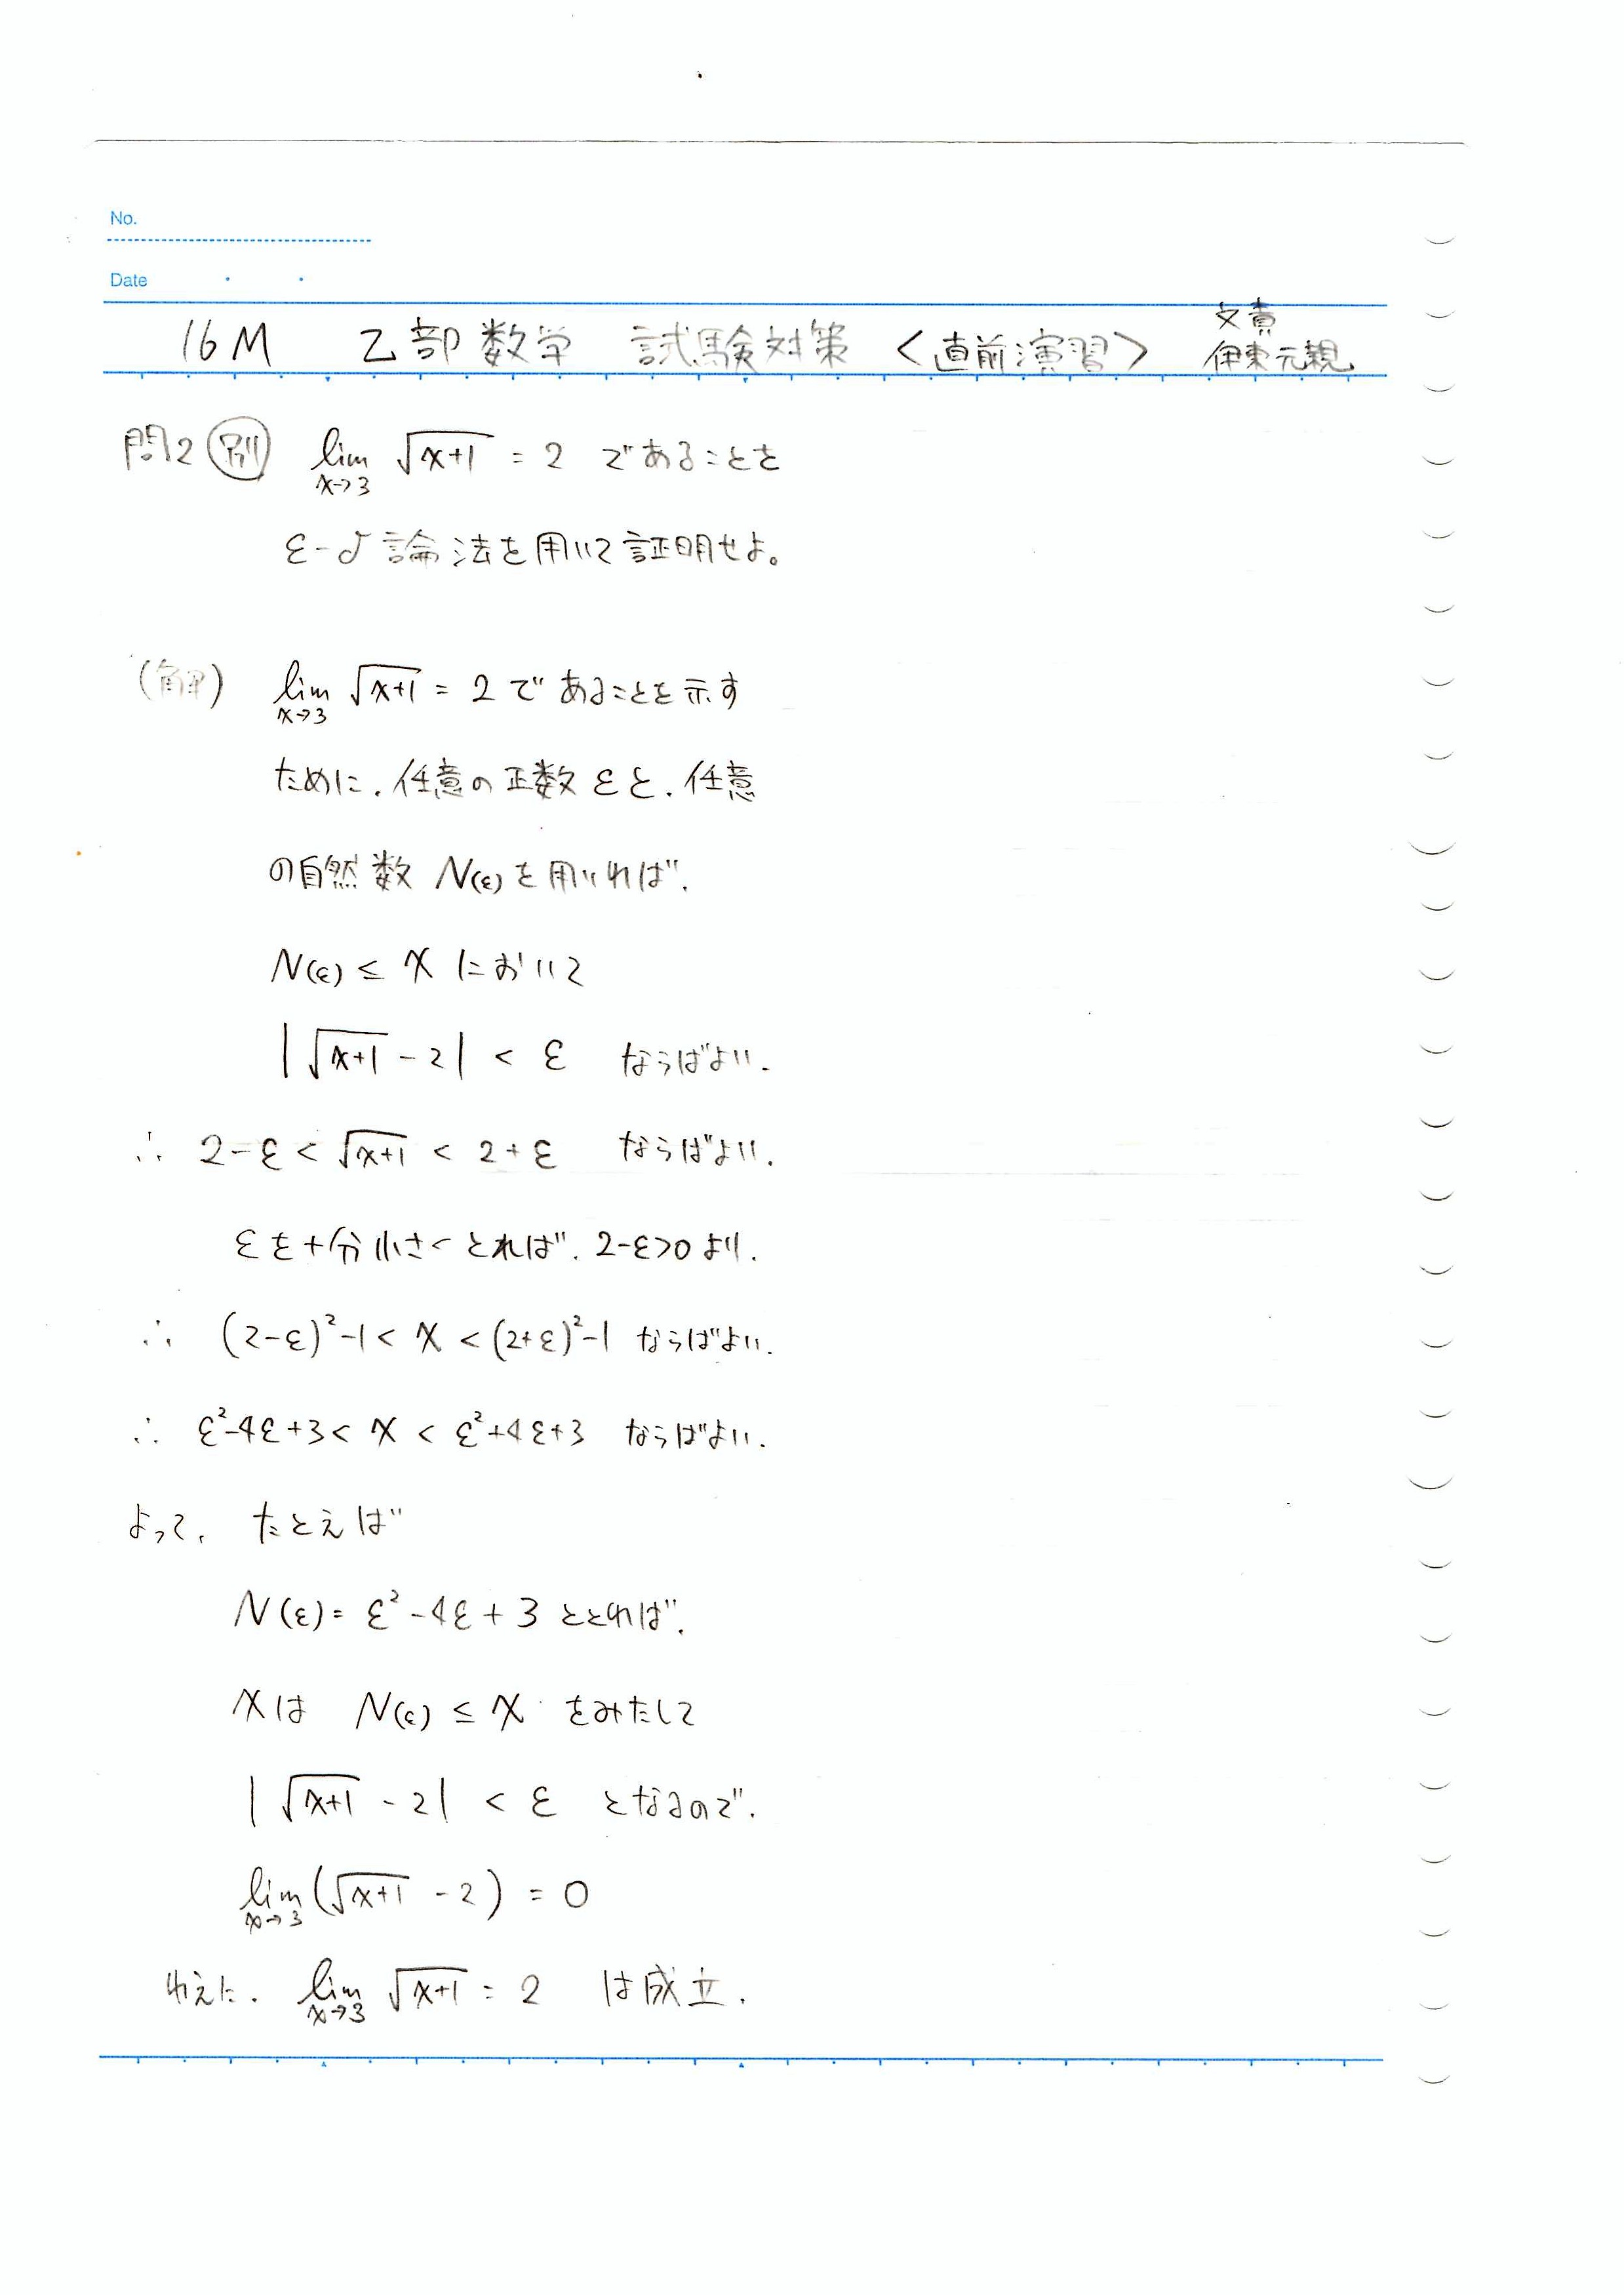 No.
Date
16M 乙部数学 試験対策 <直前演習> 文責 伊東元親
問2 別 lim x→3 √x+1 = 2 であることを
ε-δ論法を用いて証明せよ。
(解) lim x→3 √x+1 = 2 であることを示す
ために、任意の正数εと、任意
の自然数 N(ε)を用いれば、
N(ε) ≤ x において
|√x+1 - 2| < ε ならばよい.
∴ 2-ε < √x+1 < 2+ε ならばよい.
εを十分小さくとれば、2-ε>0より.
∴ (2-ε)²-1 < x < (2+ε)²-1 ならばよい.
∴ ε²-4ε+3 < x < ε²+4ε+3 ならばよい.
よって、たとえば
N(ε) = ε²-4ε+3 ととれば、
xは N(ε) ≤ x をみたして
|√x+1 - 2| < ε となるので、
lim x→3 (√x+1 - 2) = 0
ゆえに、lim x→3 √x+1 = 2 は成立.